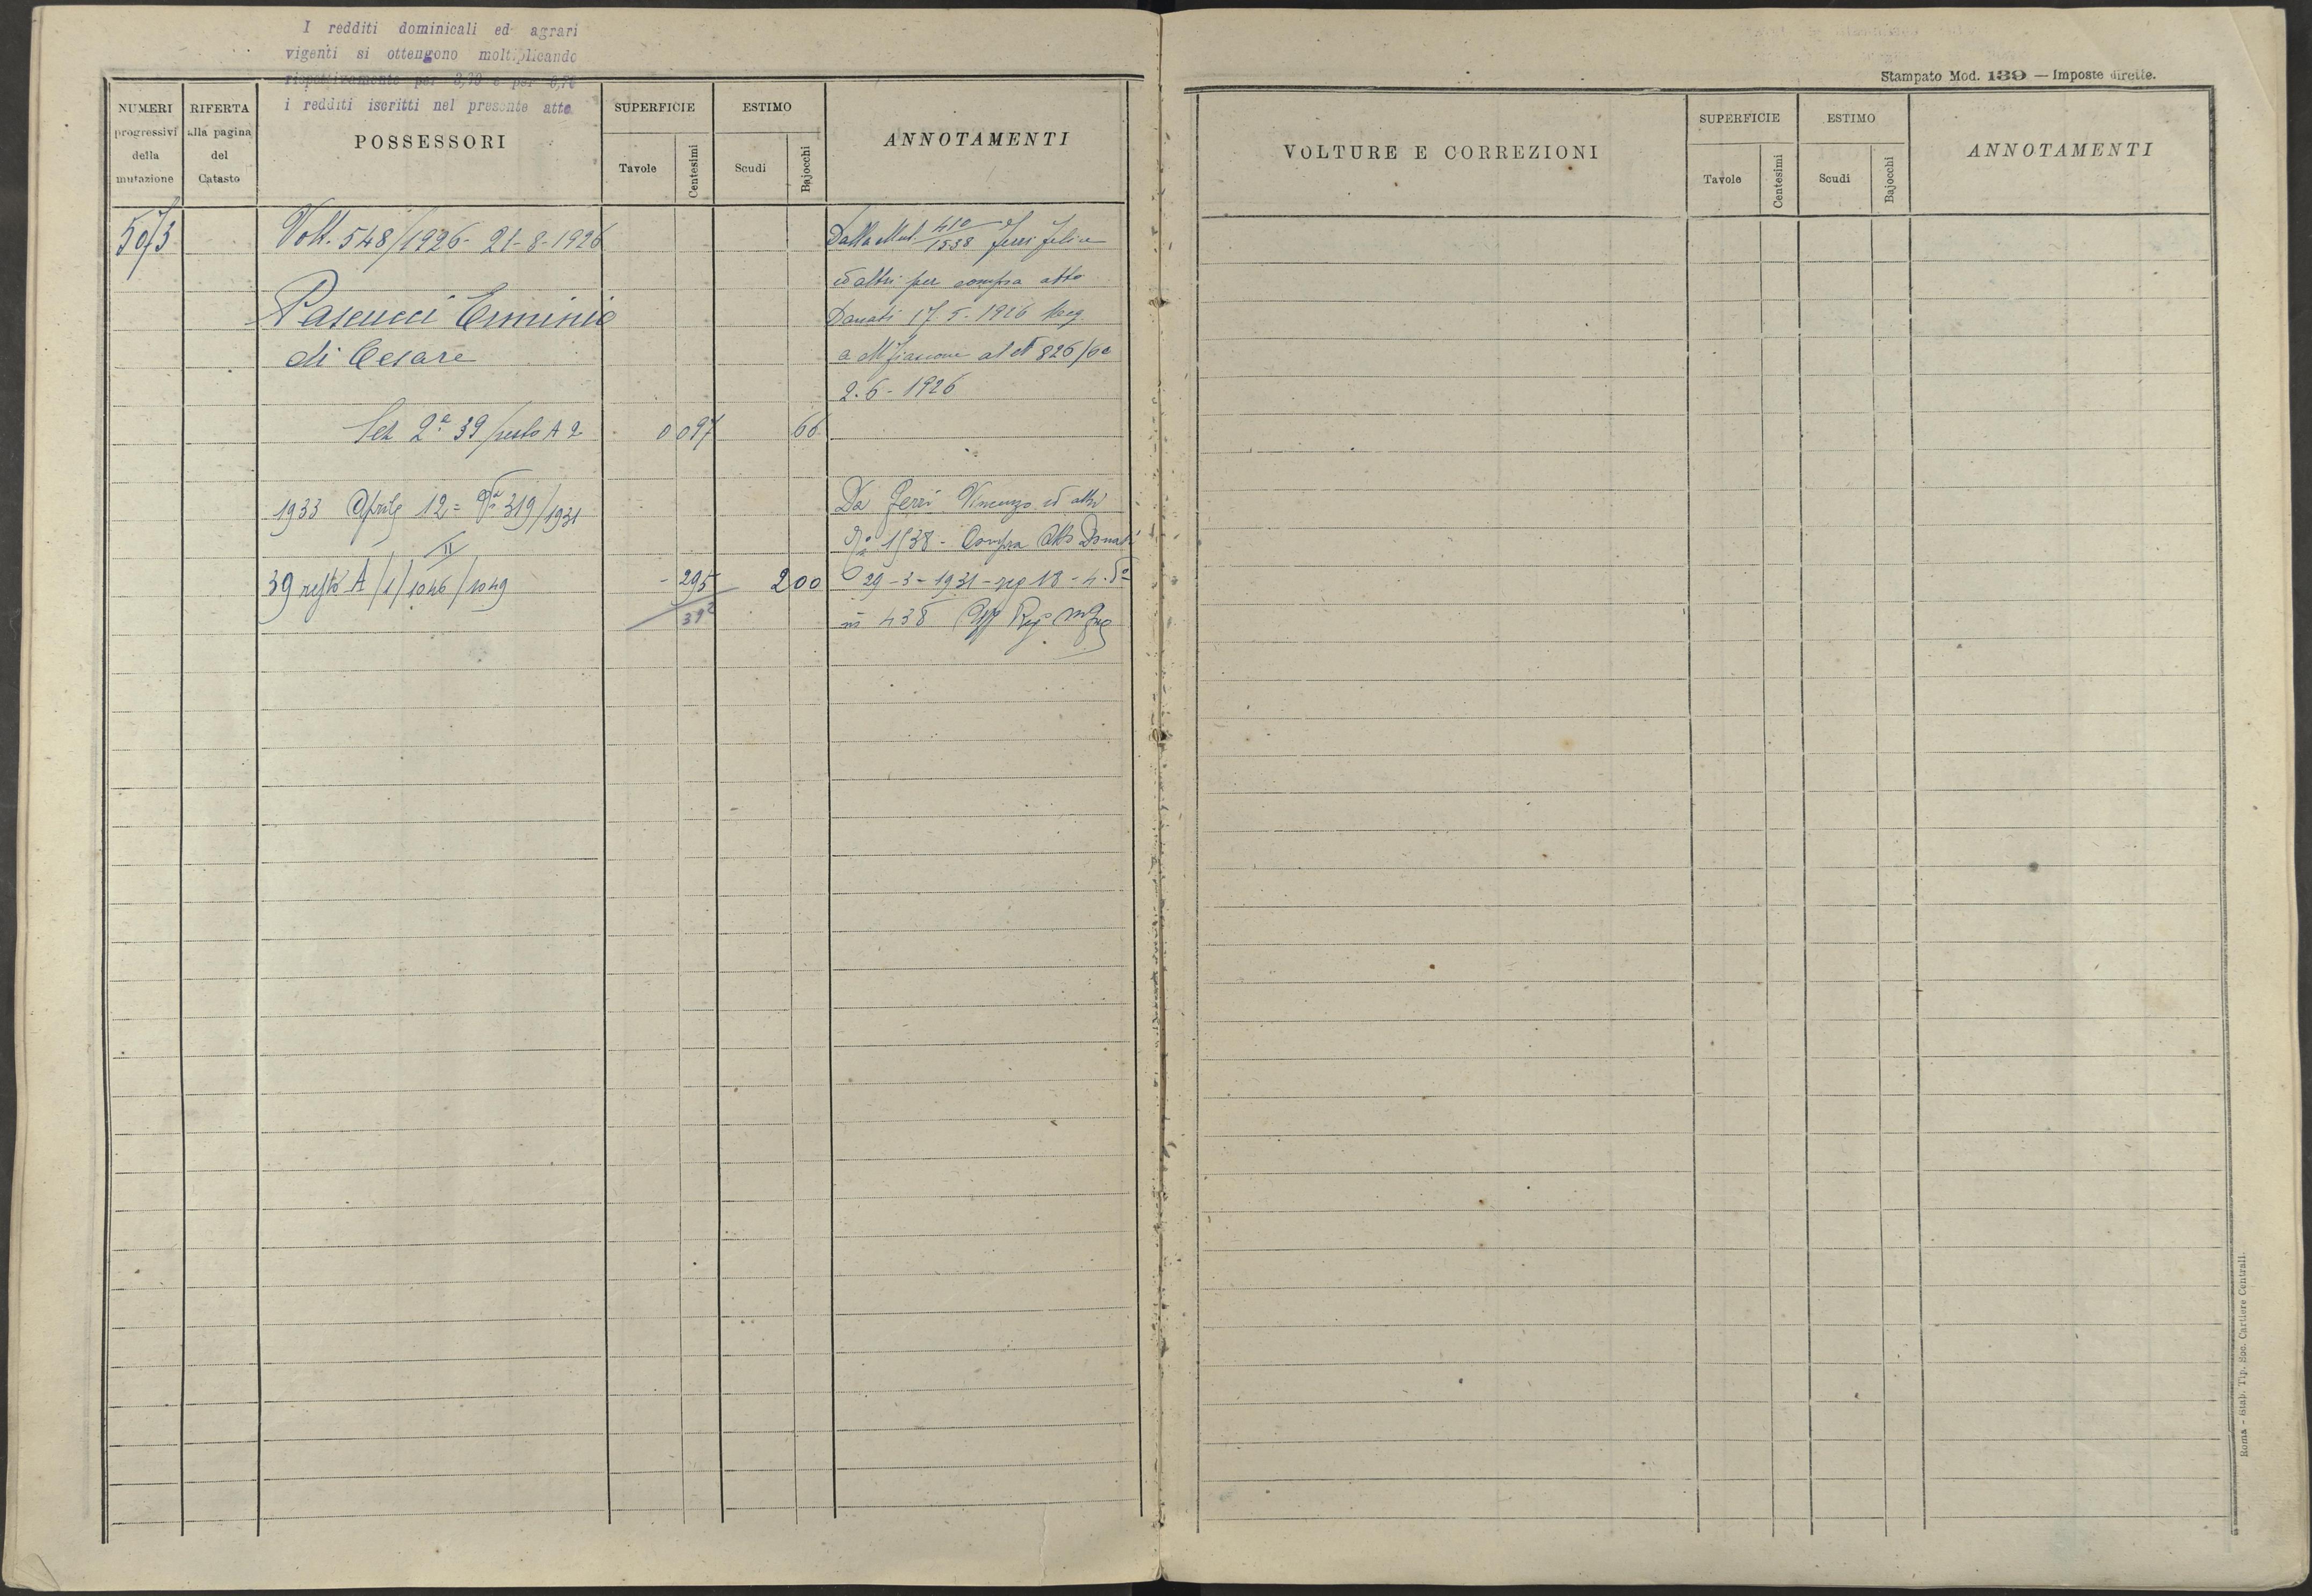 I redditi dominicali ed agrari
vigenti si ottengono moltiplicando
rispettivamente per e per
i redditi iscritti nel presente atto
NUMERI
progressivi
della
mutazione
RIFERTA
alla pagina
del
Catasto
POSSESSORI
SUPERFICIE
Tavole
Centesimi
ESTIMO
Scudi
Bajocchi
ANNOTAMENTI
5073
Volt. 548/1926 - 21-8-1926
Pascucci Erminio
di Cesare
Sez 2ª 39/resto A 2 0 097 66
Dalla Mut 410/1538 Ferri Felice
ed altri per compra atto
Donati 17-5-1926 Reg
a M fiascone al N 826
2-6-1926
1933 Aprile 12 = 319/1931
II
39 resto A/1/1046/1049 - 295 2 00
392
Da Ferri Vincenzo ed altri
1538 - Compra Atto Donati
29-3-1931 - reg 18-4-
435
Stampato Mod. 139 — Imposte dirette.
VOLTURE E CORREZIONI
SUPERFICIE
Tavole
Centesimi
ESTIMO
Scudi
Bajocchi
ANNOTAMENTI
Roma - Stab. Tip. Soc. Cartiere Centrali.